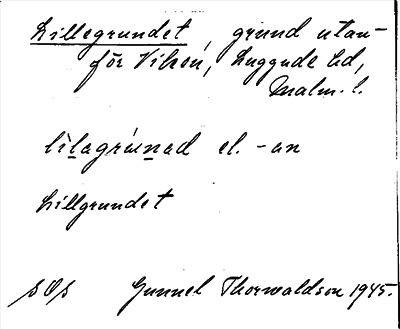 Lillegrundet, grund utan-
för Viken, Luggude hd,
Malm. l.
lìlagrúnad el. -an
Lillgrundet
SOS Gunnel Thorwaldson 1945.